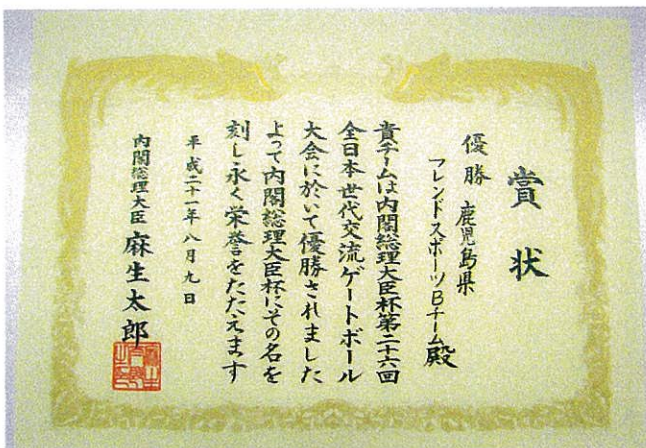 賞状
優勝 鹿児島県
フレンドスポーツBチーム殿
貴チームは内閣総理大臣杯第二十六回
全日本世代交流ゲートボール
大会に於いて優勝されました
よって内閣総理大臣杯にその名を
刻し永く栄誉をたたえます
平成二十一年八月九日
内閣総理大臣 麻生太郎